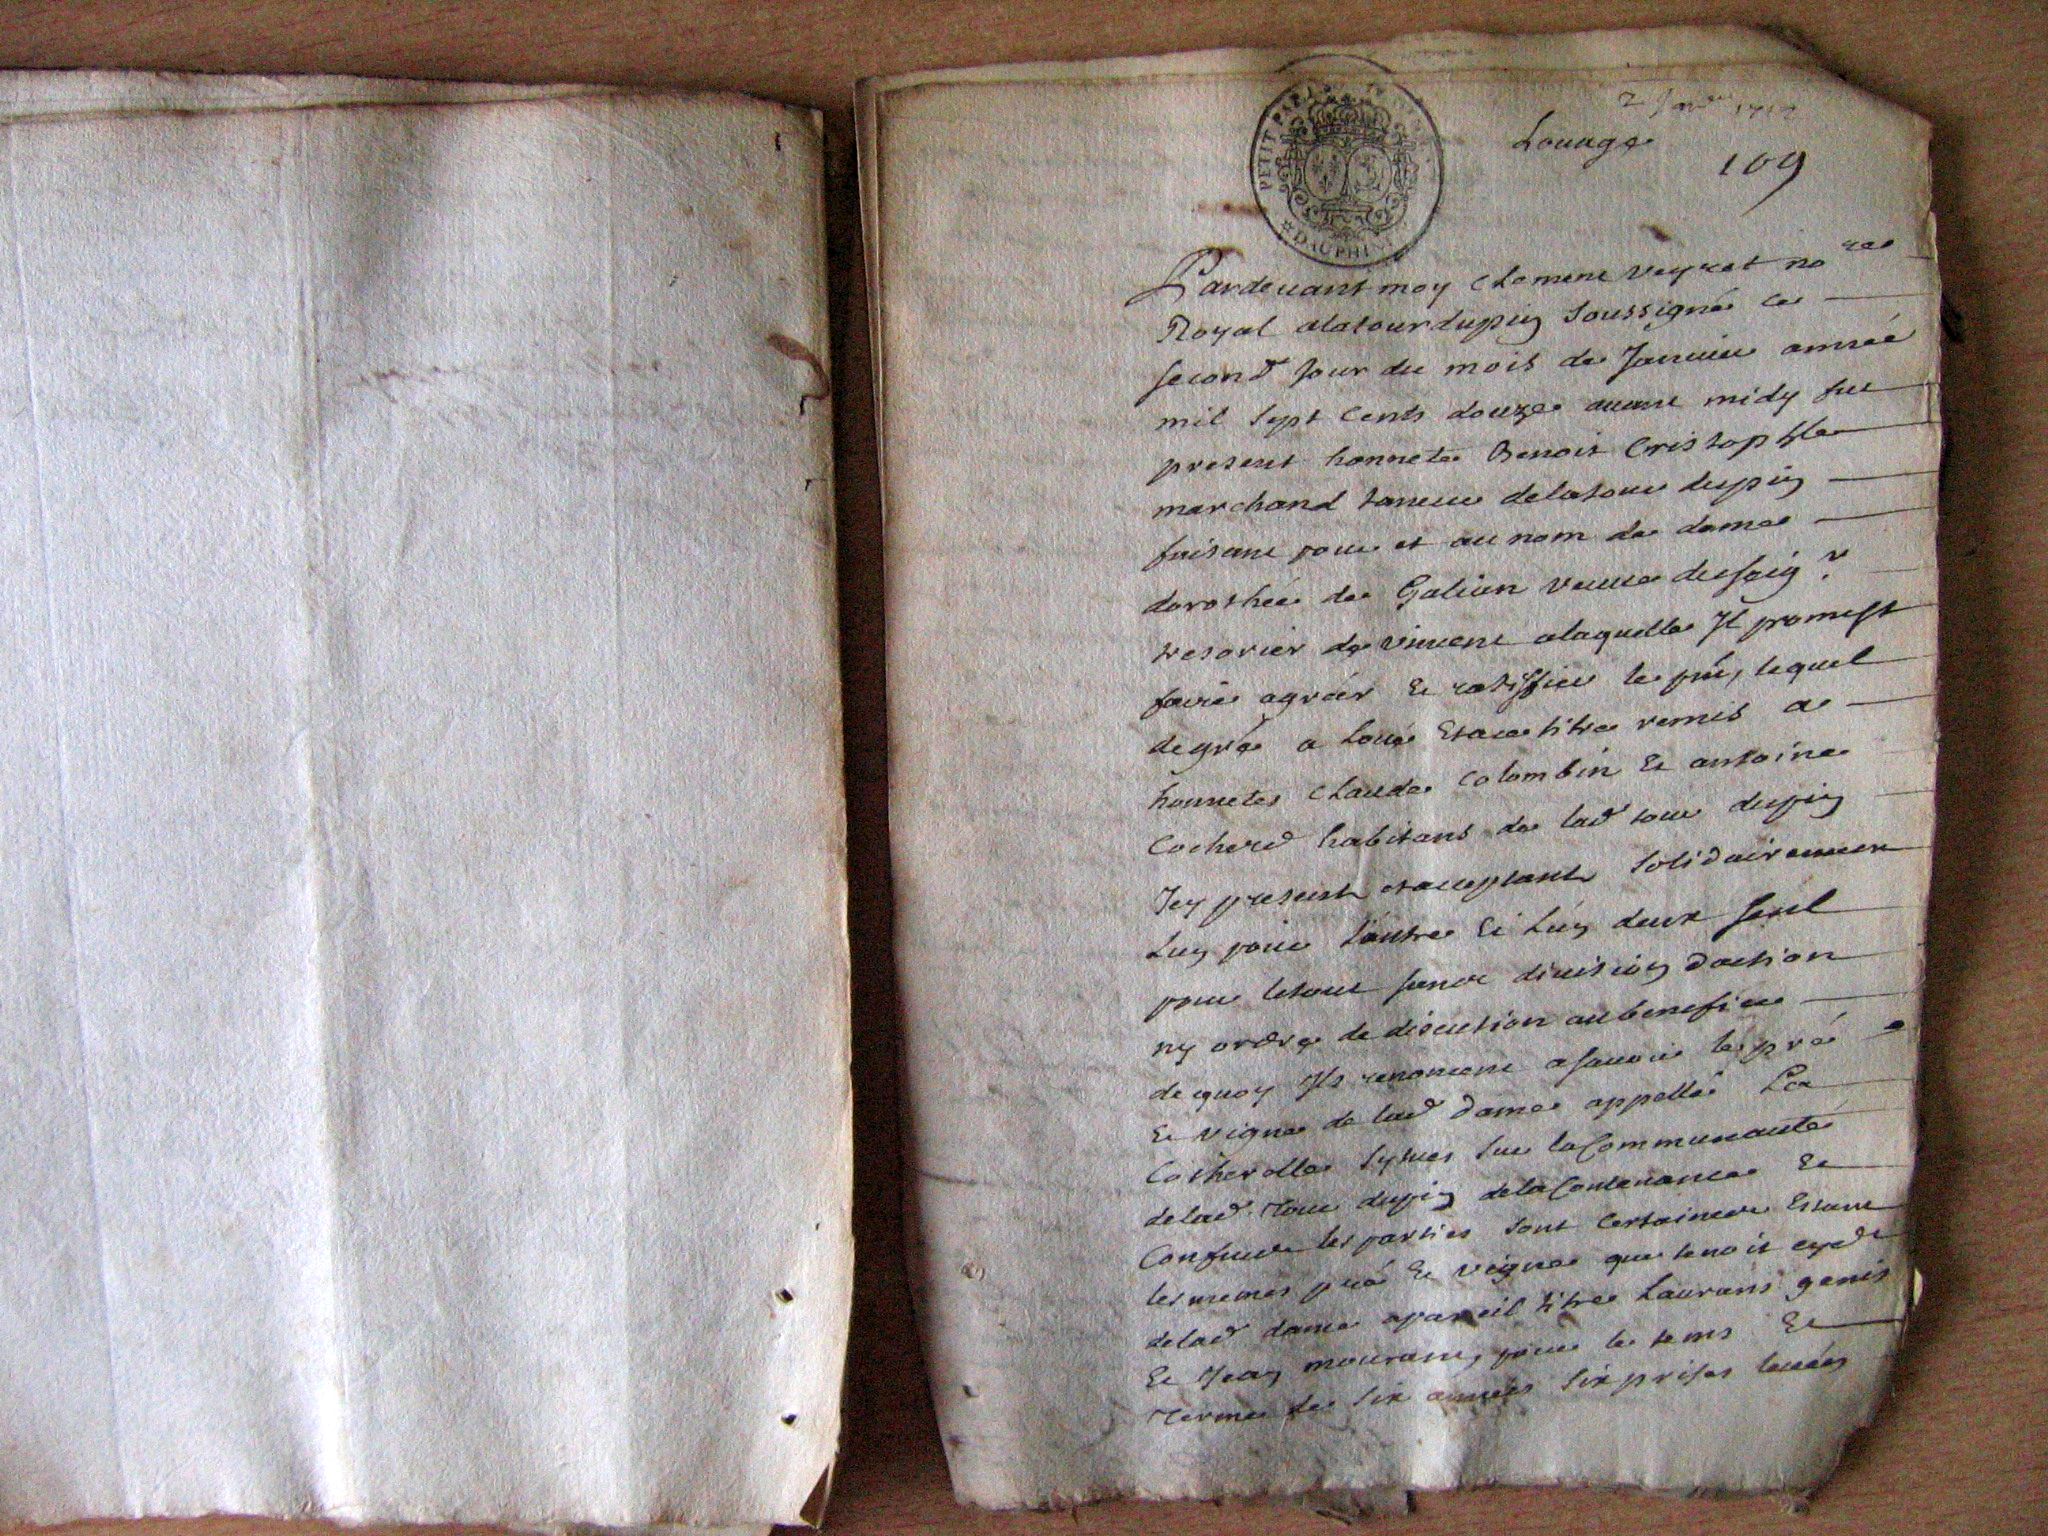 2 Janv 1712
Louage
109
PETIT PAPI
DAUPHIN
Pardeuant moy Clement Veyret no.re
Royal alatourdupin soussigné ce
second Jour du mois de Januier année
mil sept cents douze auant midy fut
present honnete Benoit Cristophle
marchand taneur delatour dupin
faisant pour et au nom de dame
dorothée de Galien veuue du seig.r
tresorier de Vincent alaquelle Il promest
faire agréer Et ratiffier le pnt, lequel
degré a Loué Etace titre remis a
honnetes Claude Colombin Et antoine
Cocherd habitans de lad tour dupin
Icy present etacceptant solidairement
Lun pour Lautre Et Lun deux seul
pour letout sans diuision daction
ny ordre de discution aubenefice
dequoy Ils renoncent asauoir le pré
Et vigne de lad dame appellé La
Cocherolle sytués sur la Communauté
delad. tour dupin dela Contenance Et
Confins les parties sont Certaines Estant
lesmemes pré Et vigne que tenoit cyd.t
delad dame apareil titre Laurans genis
Et Jean mourant, pour le tems Et
terme de six années six prises leuées